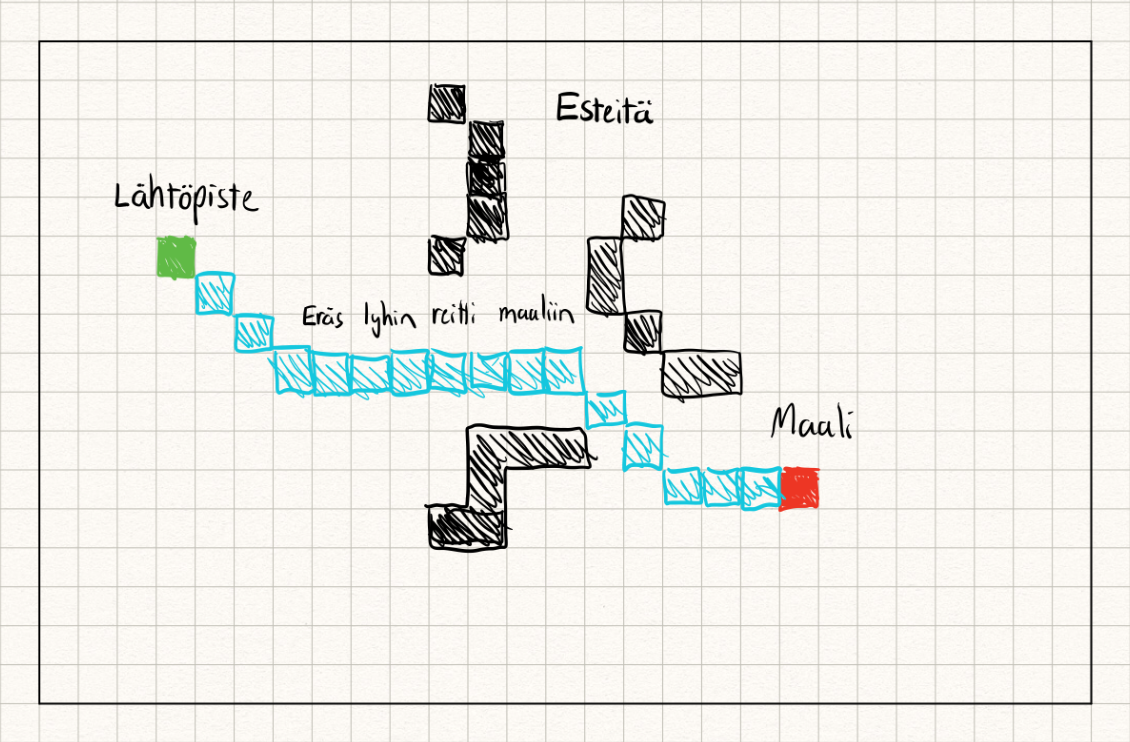 Esteitä
Lähtöpiste
Eräs lyhin reitti maaliin
Maali